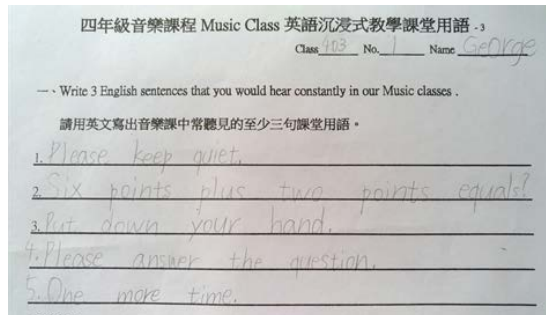 四年級音樂課程 Music Class 英語沉浸式教學課堂用語 - 3
Class 403 No. 1 Name George
一、Write 3 English sentences that you would hear constantly in our Music classes .
請用英文寫出音樂課中常聽見的至少三句課堂用語。
1. Please keep quiet.
2. Six points plus two points equals?
3. Put down your hand.
4. Please answer the question.
5. One more time.